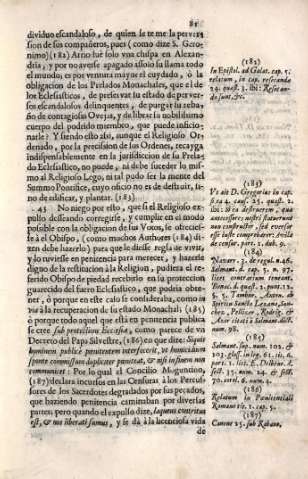 81
dividuo escandaloso, de quien se teme la perver-
sion de sus compañeros, pues (como dize S. Gero-
nimo)(182) Arrio fuè solo vna chispa en Alexan-
dria, y por no averse apagado assolò su llama todo
el mundo, es por ventura mayor el cuydado, ò la
obligacion de los Prelados Monachales, que el de
los Eclesiasticos, de preservar su estado de perver-
sos escandalosos delinquentes, de purgar su reba-
ño de contagiosa Oveja, y de librar la nobilidad
cuerpo del podrido miembro, que puede inficio-
narle? Y siendo esto assi, aunque el Religioso Or-
denado, por la precission de los Ordenes, recayga
indispensablemente en la jurisdiccion de su Prela-
do Eclesiastico, no puede, ni debe suceder lo mis-
mo al Religioso Lego, ni tal pudo ser la mente del
Summo Pontifice, cuyo oficio no es de destruir, si-
no de edificar, y plantar. (183)
45 No niego por esto, que si el Religioso ex-
pulso desseando corregirse, y cumplir en el modo
possible con la obligacion de sus Votos, se ofrecies-
se à el Obispo, (como muchos Authores (184) di-
zen debe hazerlo) para que le diesse regla de vivir,
y lo tuviesse en penitencia para merecer, y hazerle
digno de la restitucion à la Religion, pudiera el re-
ferido Obispo de piedad recebirlo en su proteccion
guarecido del fuero Eclesiastico, que podria obte-
ner, ò porque en este caso se consideraba, como in
via à la recuperacion de su estado Monachal (185)
ò porque todo aquel que està en penitencia publica
se cree sub protectione Ecclesiæ, como parece de vn
Decreto del Papa Silvestre, (186) en que dize: Siquis
hominem publicè pœnitentem interfecerit, vt homicidium
sponte commissum dupliciter pœniteat, &
communicet: Por lo qual el Concilio Moguntino,
(187) declara incursos en las Censuras à los Percus-
sores de los Sacerdotes degradados por sus pecados,
que haziendo penitencia caminaban por diversas
partes; pero quando el expulso dize, laqueus contritus
est, & nos liberati sumus, y se dà à la licenciosa vida
de
(182)
In Epistol. ad Galat. cap. 5.
relatum, in cap. resecandæ
24. quæst. 3. ibi: Resecan-
dæ sunt, &c.
(183)
Vt ait D. Gregorius in cap.
quæst. 2.
ibi: Si ea destruerem, quæ
antecessores nostri statuerunt
non constructor, sed eversor
esse iuste comprobarer; Avila
de censur. part. 2. dub. 9.
(184)
Navarr. 3. de regul. n. 46.
Salmant. d. cap. 5. n. 57
licet contrarium teneant.
(185)
Salmant. sup. num. 102. &
103.
(186)
Relatum in Pœnitentiali
Romano tit. 1. cap. 5.
(187)
Canon 25. sub Rabano.